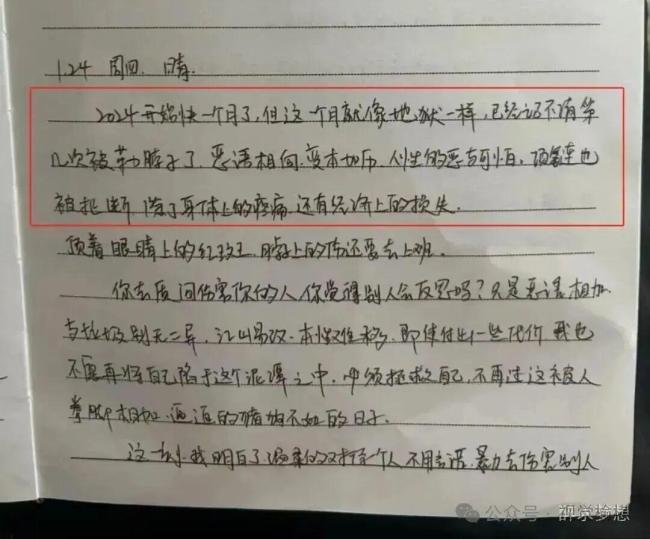 1.24 周四. 晴.
2024开始快一个月了,但这一个月就像地狱一样,已经记不清第
几次被勒脖子了.恶语相向.变本加厉.人性的恶与可怕.项链也
被扯断.除了身体上的疼痛.还有经济上的损失.
顶着眼睛上的红斑.脖子上的伤还要去上班.
你去质问伤害你的人你觉得别人会反思吗?只是恶语相加
与垃圾别无二异.江山易改.本性难移.即使付出一些代价我也
不愿再将自己陷于这个泥潭之中.必须拯救自己.不再过这被人
拳脚相加.逼迫的猪狗不如的日子.
这一刻.我明白了温柔的对待一个人不用言语.暴力去伤害别人
公众号·视觉梦想